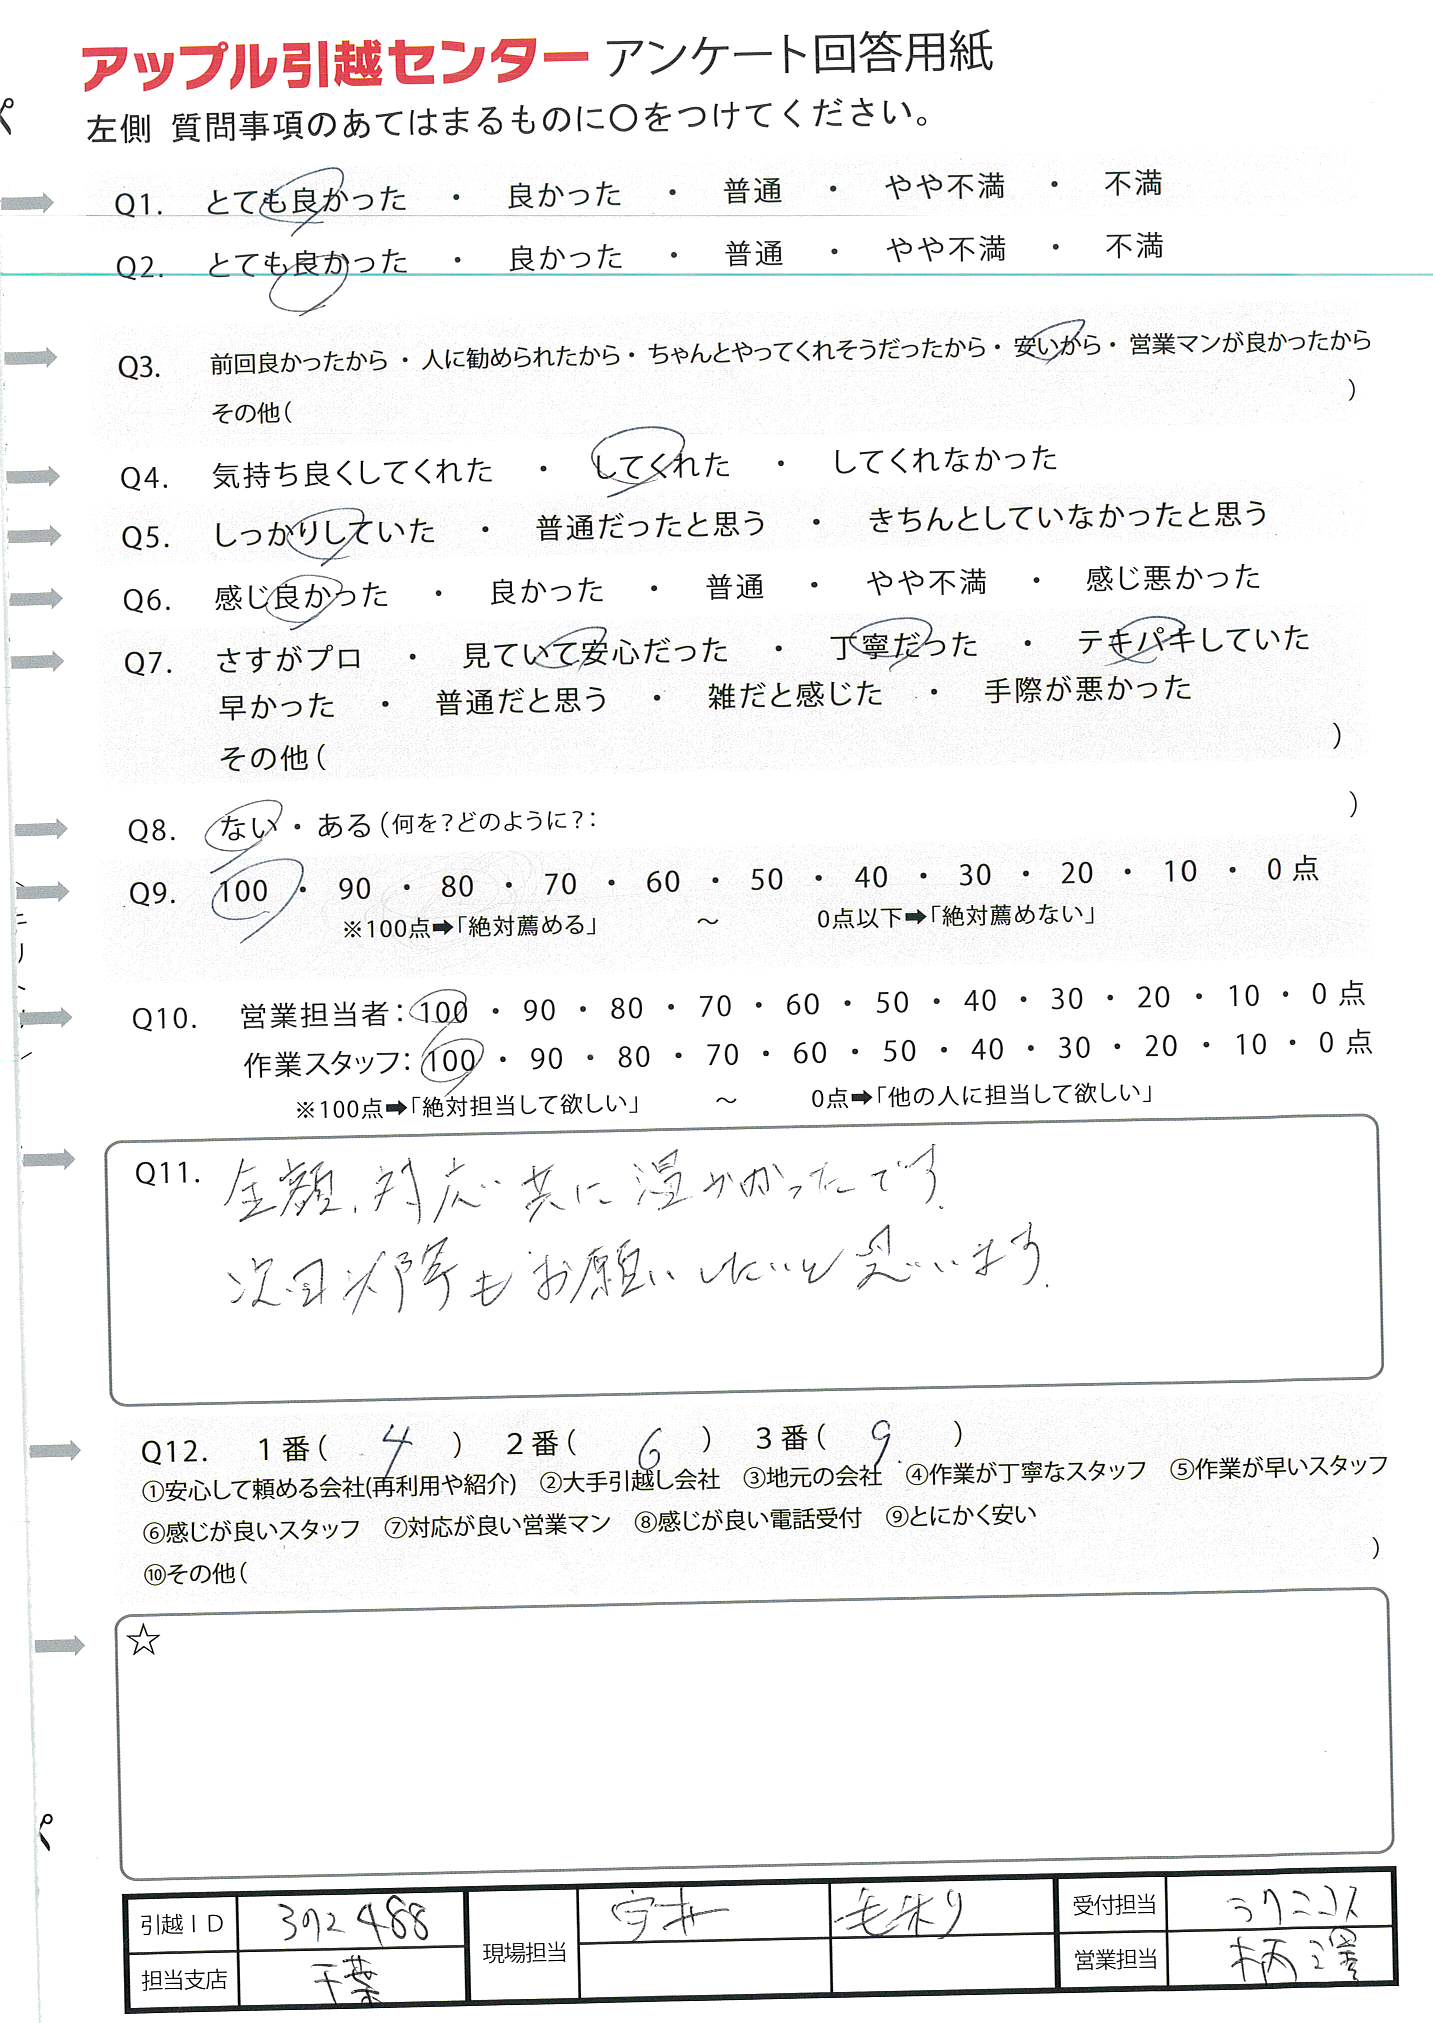 アップル引越センター アンケート回答用紙
左側 質問事項のあてはまるものに〇をつけてください。
Q1. とても良かった ・ 良かった ・ 普通 ・ やや不満 ・ 不満
Q2. とても良かった ・ 良かった ・ 普通 ・ やや不満 ・ 不満
Q3. 前回良かったから・人に勧められたから・ちゃんとやってくれそうだったから・安いから・営業マンが良かったから
その他( )
Q4. 気持ち良くしてくれた ・ してくれた ・ してくれなかった
Q5. しっかりしていた ・ 普通だったと思う ・ きちんとしていなかったと思う
Q6. 感じ良かった ・ 良かった ・ 普通 ・ やや不満 ・ 感じ悪かった
Q7. さすがプロ ・ 見ていて安心だった ・ 丁寧だった ・ テキパキしていた
早かった ・ 普通だと思う ・ 雑だと感じた ・ 手際が悪かった
その他( )
Q8. ない・ある(何を?どのように?: )
Q9. 100 ・ 90 ・ 80 ・ 70 ・ 60 ・ 50 ・ 40 ・ 30 ・ 20 ・ 10 ・ 0点
※100点➡「絶対薦める」 ～ 0点以下➡「絶対薦めない」
Q10. 営業担当者:100 ・ 90 ・ 80 ・ 70 ・ 60 ・ 50 ・ 40 ・ 30 ・ 20 ・ 10 ・ 0点
作業スタッフ:100 ・ 90 ・ 80 ・ 70 ・ 60 ・ 50 ・ 40 ・ 30 ・ 20 ・ 10 ・ 0点
※100点➡「絶対担当して欲しい」 ～ 0点➡「他の人に担当して欲しい」
Q11. 金額、対応共に温かかったです.
次回以降もお願いしたいと思います.
Q12. 1番( 4 ) 2番( 6 ) 3番( 9. )
①安心して頼める会社(再利用や紹介) ②大手引越し会社 ③地元の会社 ④作業が丁寧なスタッフ ⑤作業が早いスタッフ
⑥感じが良いスタッフ ⑦対応が良い営業マン ⑧感じが良い電話受付 ⑨とにかく安い
⑩その他( )
☆
引越ID 392488 現場担当 受付担当 ラクニコス
担当支店 千葉 営業担当 柄澤